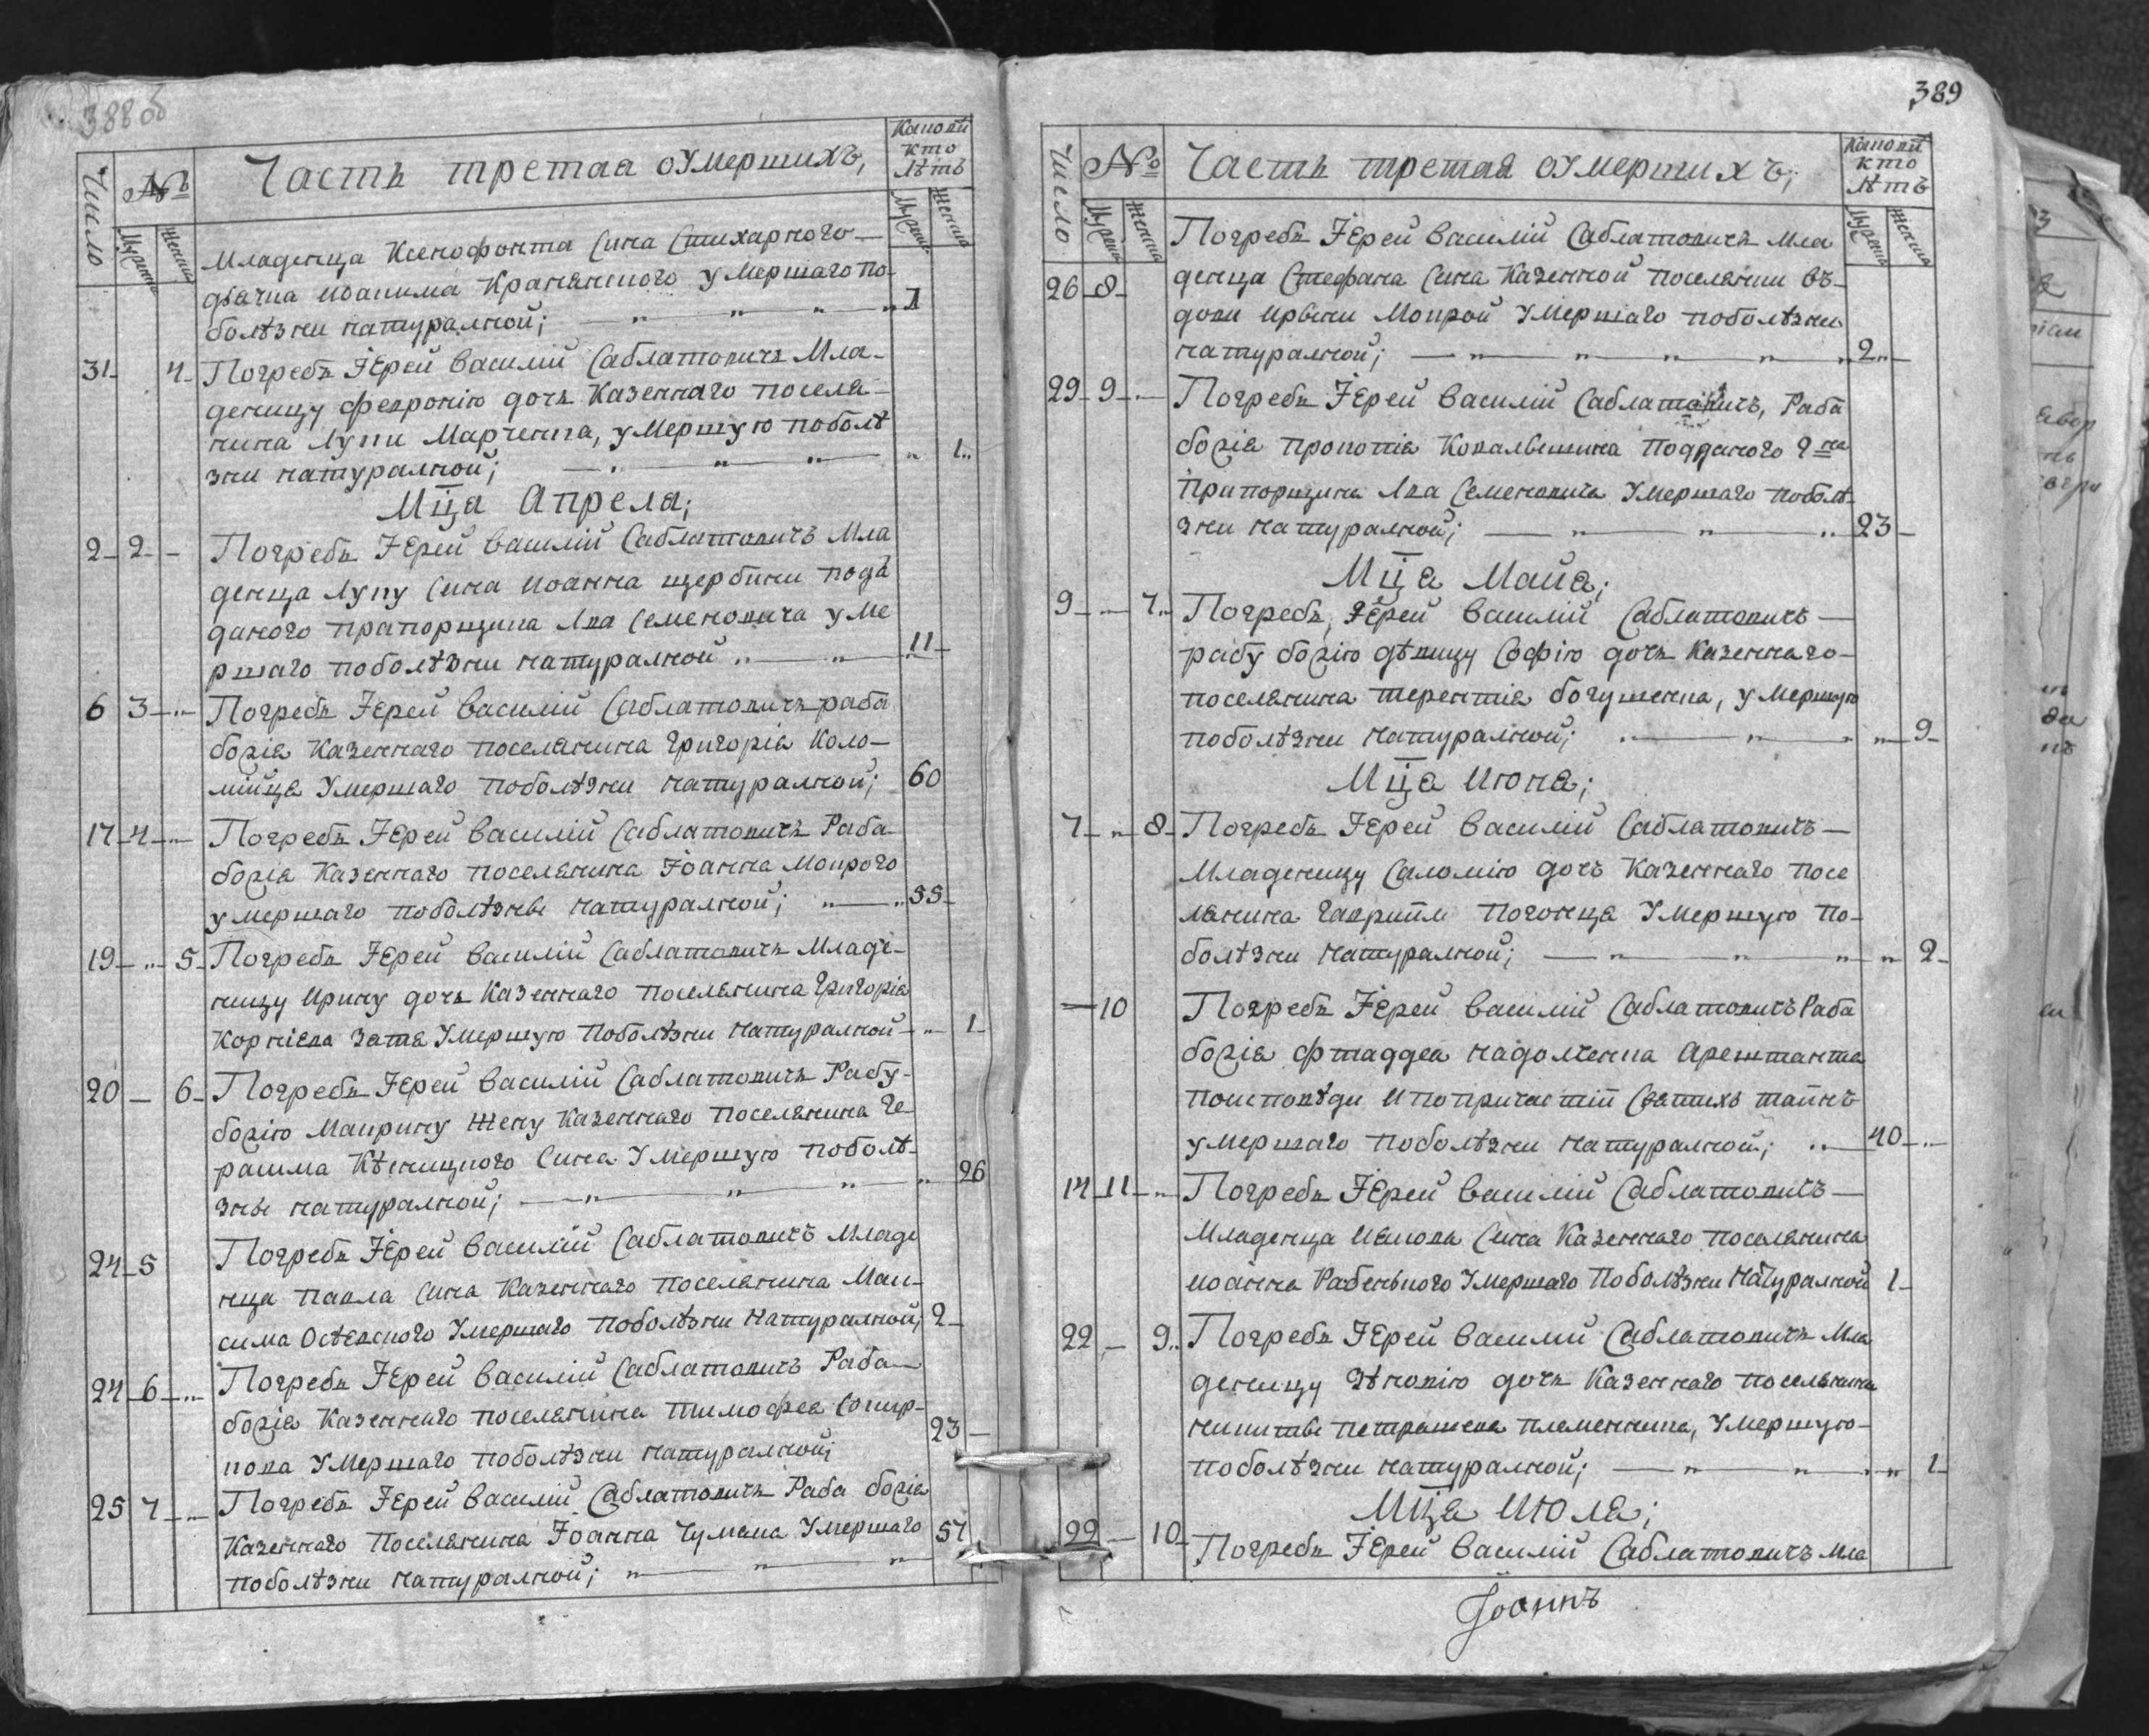 388 об
Число
№
Часть третая оумершихъ,
Каковы
кто
лѣтъ
Мужеска
Женска
Мужеска
Женска
Младенца Ксенофонта Сина Стихарного
дячка Иоакима Кранянского умершаго по
болѣзни натуралной; 1
31 4 Погребъ Іерей Василій Саблатовичъ Мла
деницу Февронію дочъ Казеннаго поселя
нина Лупи Марченка, умершую поболѣ
зни натуралной; 1
Мца Апреля;
2 2 Погребъ Іерей Василій Саблатовичъ Мла
денца Лупу Сина Иоанна щербини подъ
даного прапорщика Лва Семеновича уме
ршаго поболѣзни натуралной 11
6 3 Погребъ Іерей Василій Саблатовичъ раба
божія Казеннаго поселянина Григорія Коло
мійца Умершаго поболѣзни натуралной; 60
17 4 Погребъ Іерей Василій Саблатовичъ Раба
божія Казеннаго поселянина Іоанна Мокрого
умершаго поболѣзнѣ натуралной; 55
19 5 Погребъ Іерей Василій Саблатовичъ Младе
ницу Ирину дочъ Казеннаго поселянина Григорія
Корніева Зятя Умершую Поболѣзни Натуралной 1
20 6 Погребъ Іерей Василій Саблатовичъ Рабу
божію Маврину Жену Казеннаго поселянина Ге
расима Сина Умершую поболѣ
знѣ натуралной; 26
24 5 Погребъ Іерей Василій Саблатовичъ Младе
нца Павла Сина Казеннаго поселянина Мак
сима Умершаго поболѣзни Натуралной; 2
24 6 Погребъ Іерей Василій Саблатовичъ Раба
божія Казеннаго поселянина Тимофея
Умершаго поболѣзни натуралной; 23
25 7 Погребъ Іерей Василій Саблатовичъ Раба божія
Казеннаго Поселянина Іоанна Чумака Умершаго 57
поболѣзни натуралной;
389
Число
№
Часть третая оумершихъ;
Каковы
кто
лѣтъ
Мужеска
Женска
Мужеска
Женска
Погребъ Іерей Василій Саблатовичъ Мла
26 8 денца Стефана Сина Казенной поселянки въ
дови Мокрой Умершаго поболѣзни
натуралной; 2
29 9 Погребъ Іерей Василій Саблатовичъ, Раба
божія Прокопія Ковалишина Подданого Г на
Прапорщика Лва Семеновича Умершаго поболѣ
зни натуралной; 23
Мца Маия;
9 7 Погребъ, Іерей Василій Саблатовичъ
рабу божію дѣвицу Софію дочъ Казеннаго
поселянина Терентія Богушенка, умершую
поболѣзни натуралной; 9
Мца Июня;
7 8 Погребъ Іерей Василій Саблатовичъ
Младеницу Саломію дочъ Казеннаго Посе
лянина Гавриіла Погонца Умершую По
болѣзни Натуралной; 2
10 Погребъ Іерей Василій Саблатовичъ Раба
божія Фтаддея надолченка Арештанта
Поисповѣди Ипопричастій Святихъ тайнъ
умершаго поболѣзни натуралной; 40
14 11 Погребъ Іерей Василій Саблатовичъ
Младенца Иякова Сина Казеннаго поселянина
иоанна Умершаго Поболѣзни Натуралной 1
22 9 Погребъ Іерей Василій Саблатовичъ Мла
деницу Зѣновію дочъ Казеннаго поселянина
никитѣ петрашева племенника, Умершую
поболѣзни натуралной; 1
Мца Июля;
22 10 Погребъ Іерей Василій Саблатовичъ мла
Іоаннъ